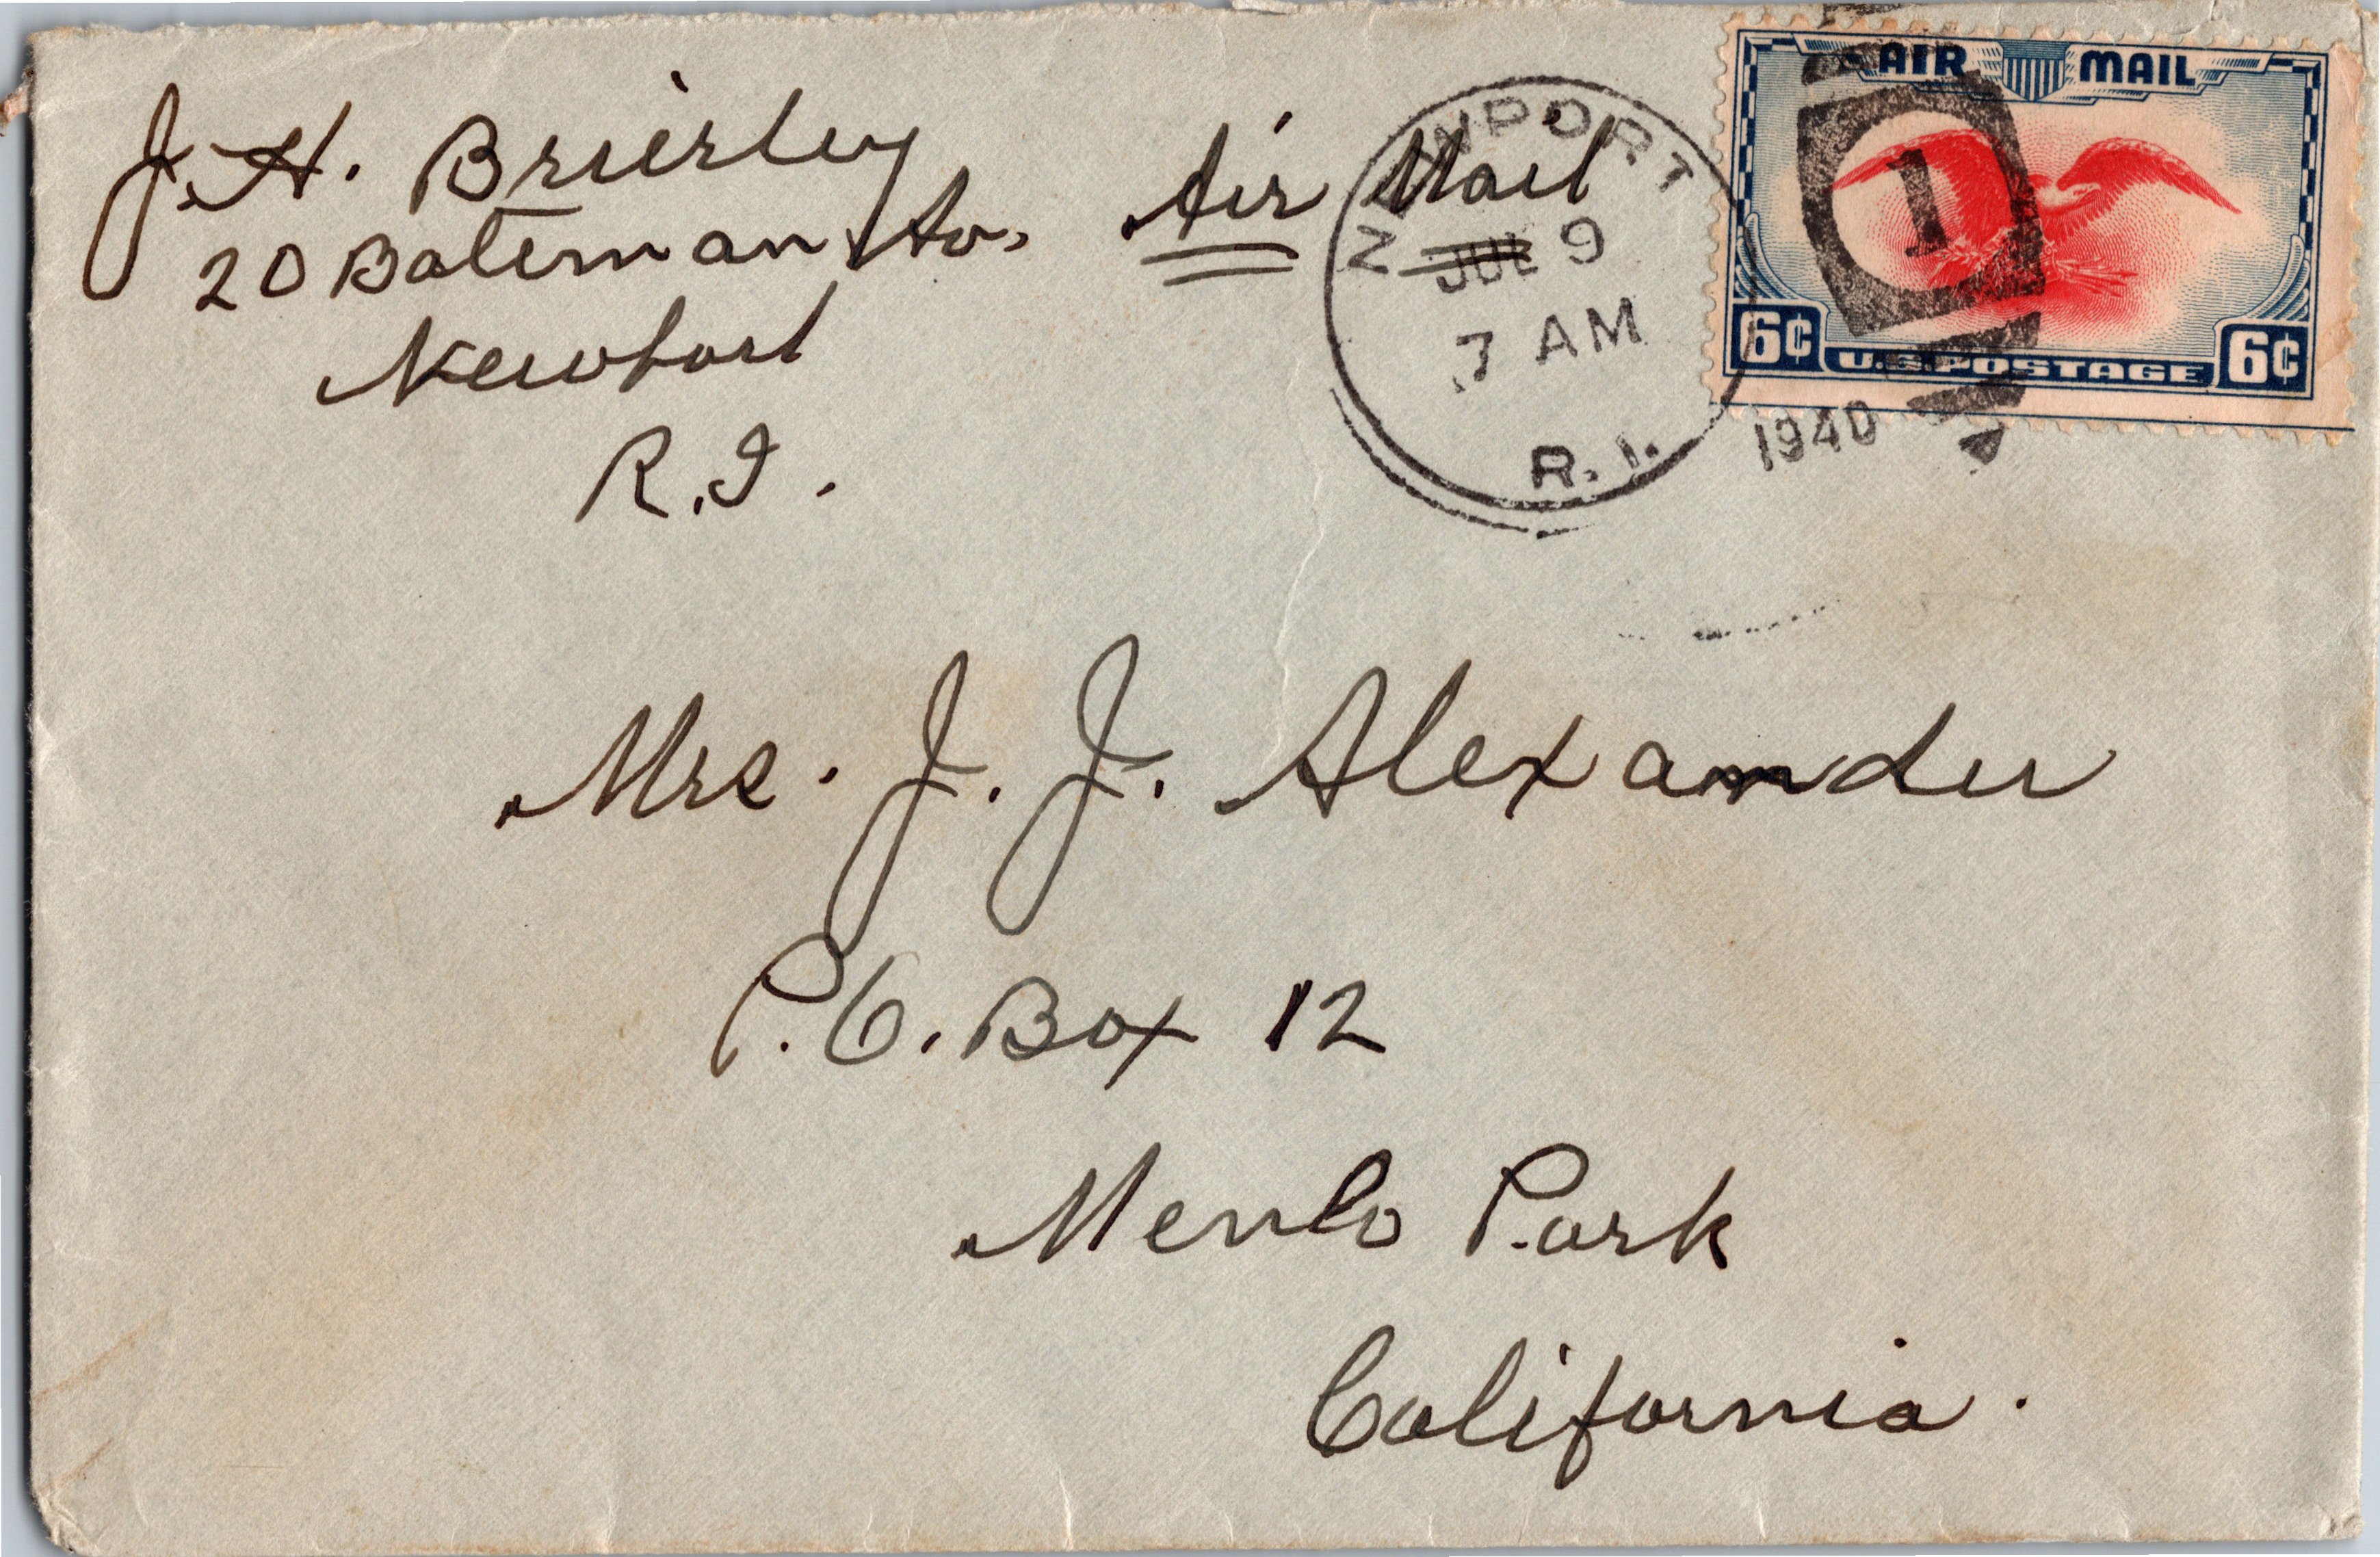 J. H. Brierley
20 Bateman Av.
Newport
R.I.
Air Mail
NEWPORT
JUL 9
7 AM
R. I.
1940
1
AIR MAIL
6¢ U.S. POSTAGE 6¢
Mrs. J. J. Alexander
P.O. Box 12
Menlo Park
California.